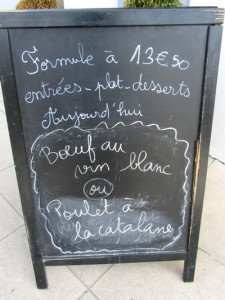 Formule à 13€50
entrées-plat-desserts
Aujourd'hui
Bœuf au
vin blanc
ou
Poulet à
la catalane